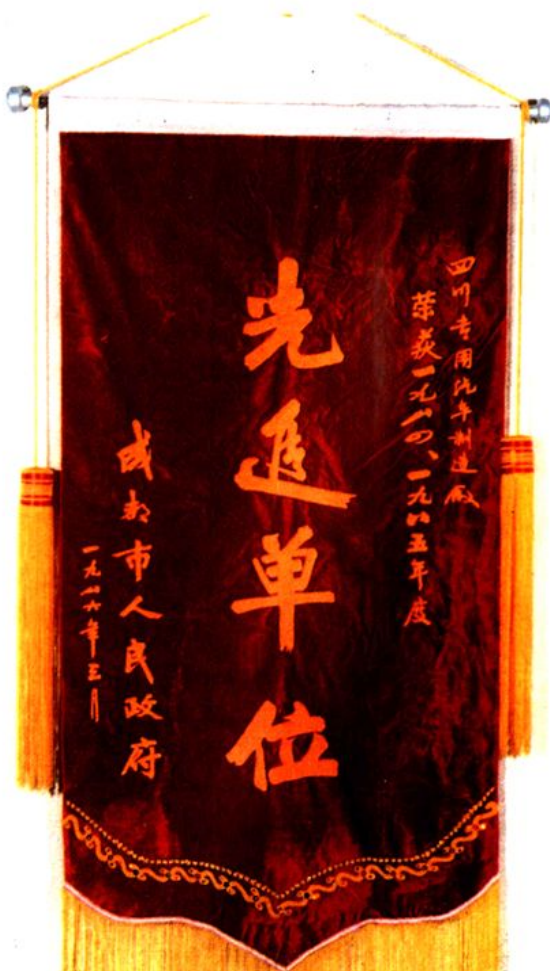 四川专用汽车制造厰
荣获一九八四、一九八五年度
先進单位
成都市人民政府
一九八六年三月